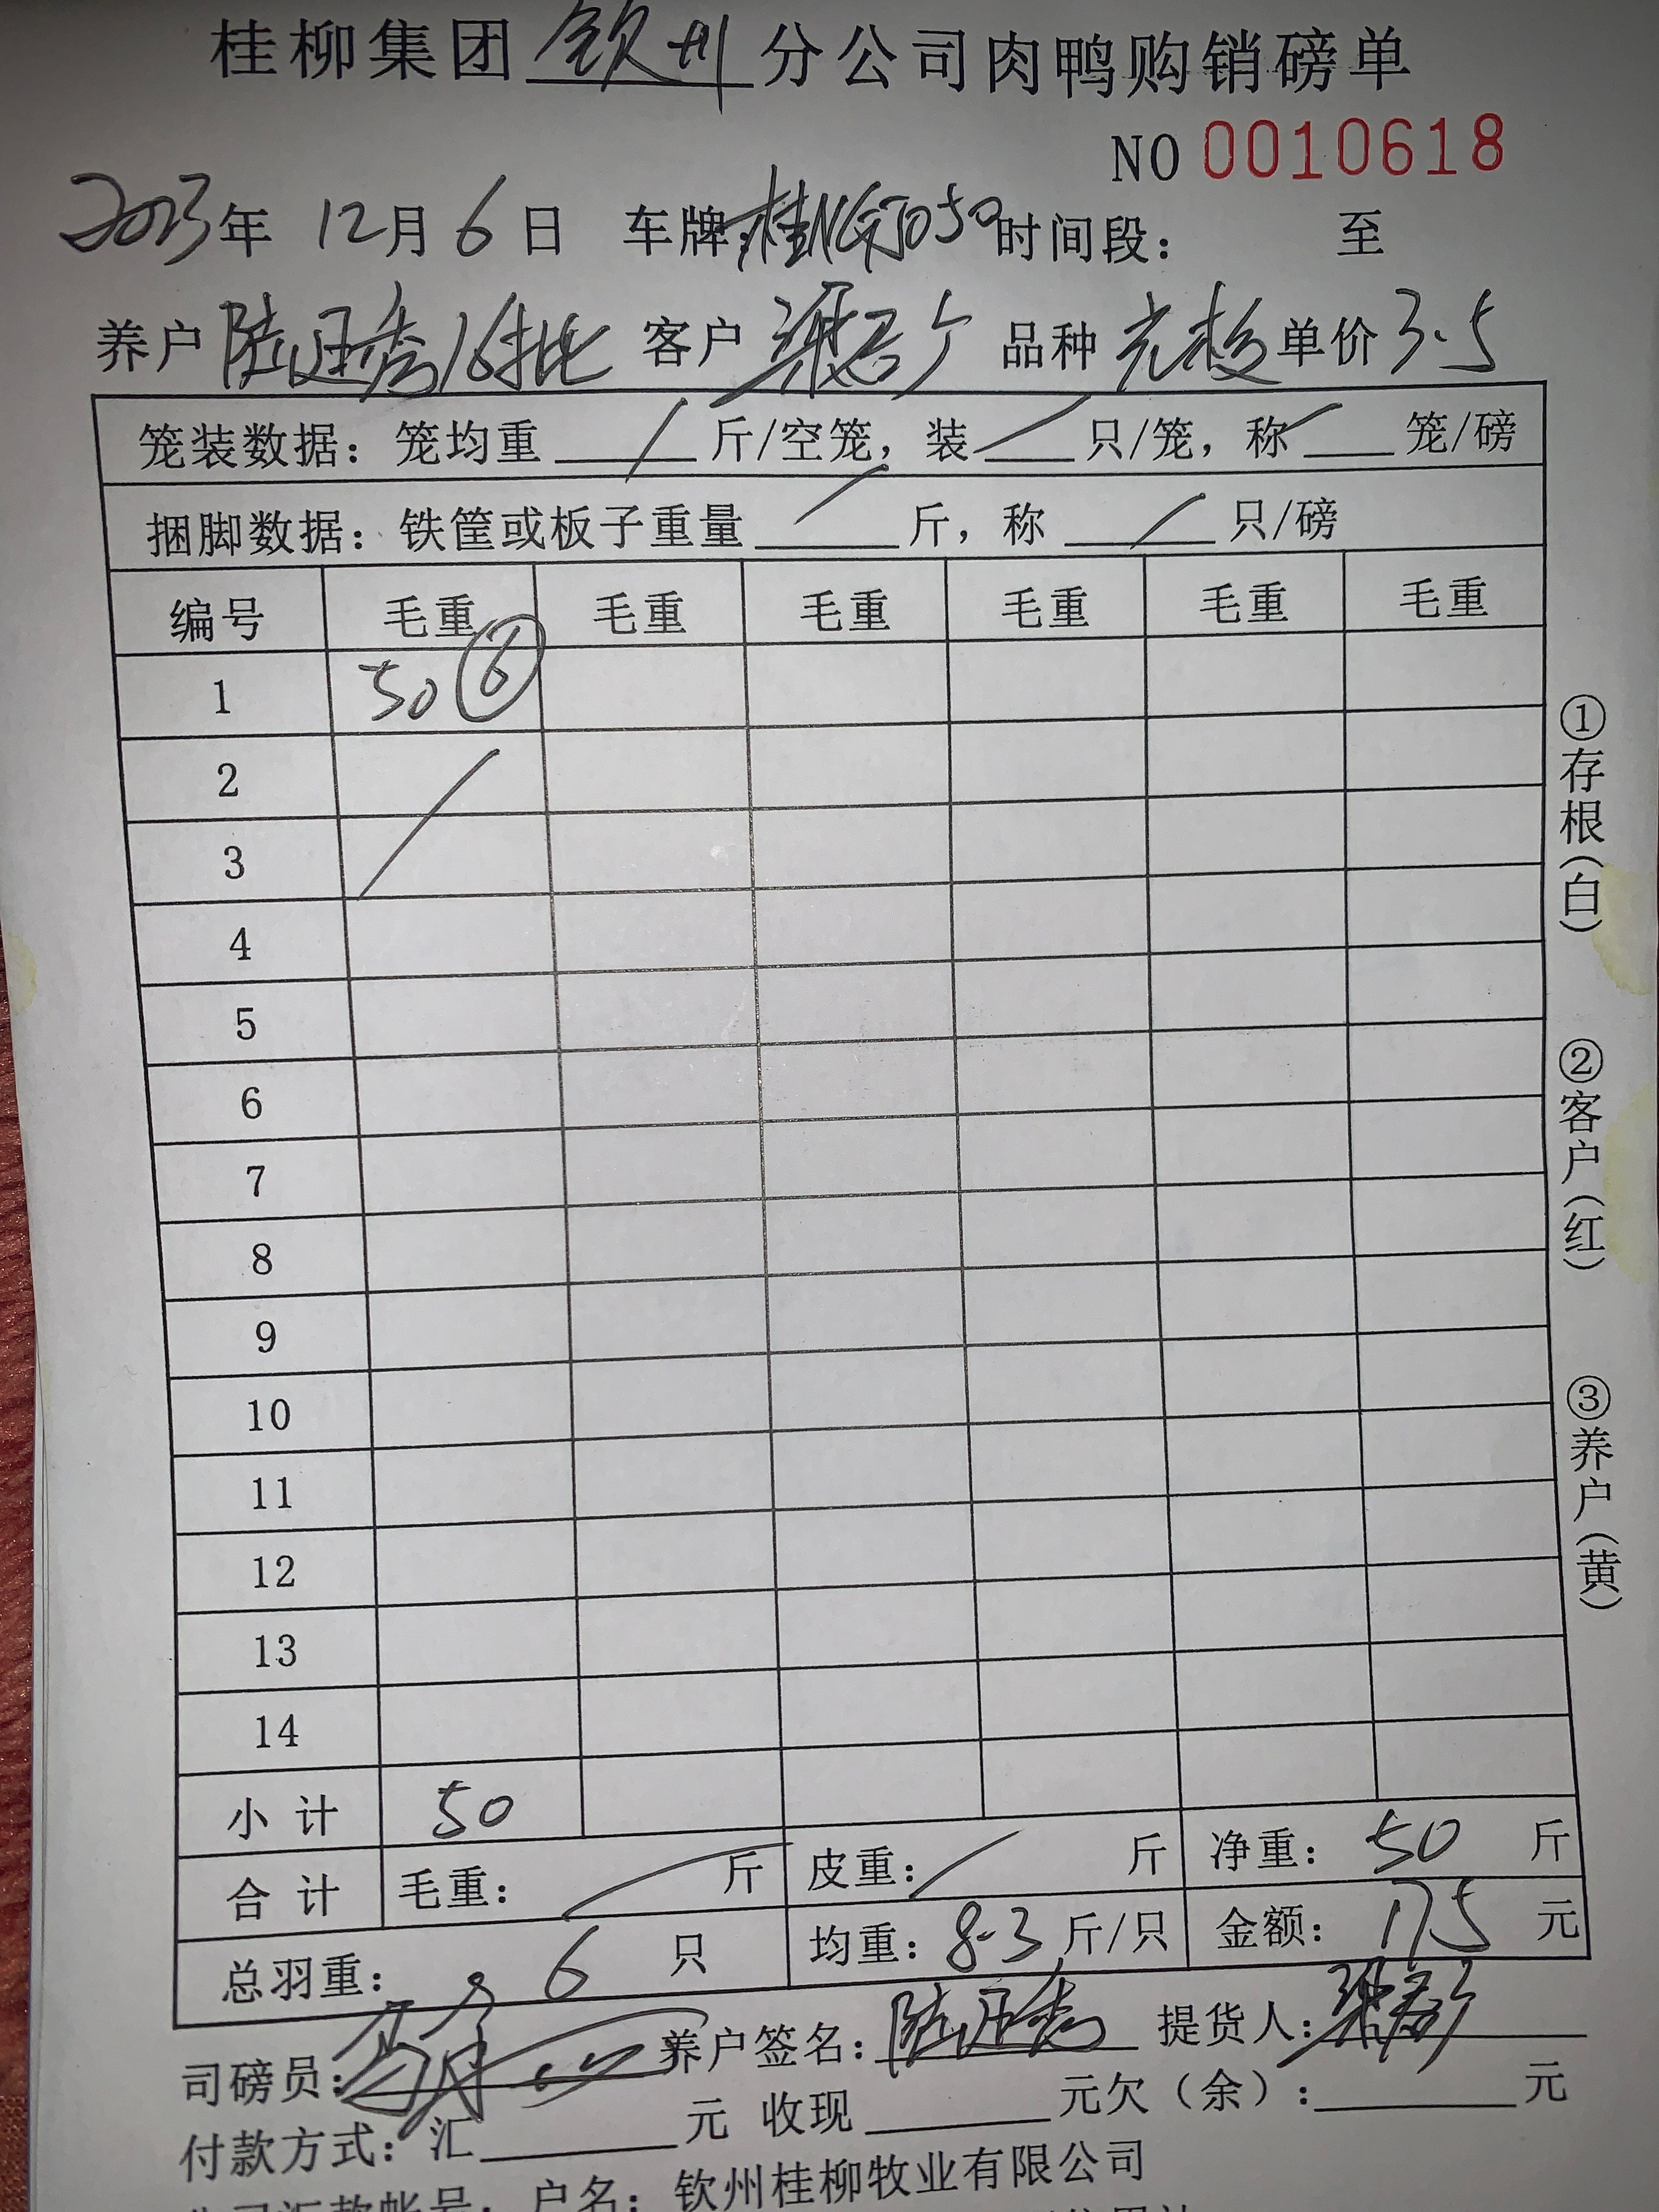 桂柳集团 钦州 分公司肉鸭购销磅单
NO 0010618
2023年 12月 6日 车牌:桂N 时间段: 至
养户 陆 秀16批 客户 梁 品种 单价 3.5
笼装数据：笼均重 / 斤/空笼，装 / 只/笼，称 / 笼/磅
捆脚数据：铁筐或板子重量 / 斤，称 / 只/磅
编号 毛重 毛重 毛重 毛重 毛重 毛重
1 50 ⑥
2 /
3
4
5
6
7
8
9
10
11
12
13
14
小计 50
合计 毛重： / 斤 皮重： / 斤 净重： 50 斤
总羽重： 6 只 均重：8.3 斤/只 金额： 175 元
司磅员： 养户签名：陆 秀 提货人：梁
付款方式：汇 元 收现 元欠（余）： 元
公司汇款帐号：户名：钦州桂柳牧业有限公司
①存根(白)
②客户(红)
③养户(黄)